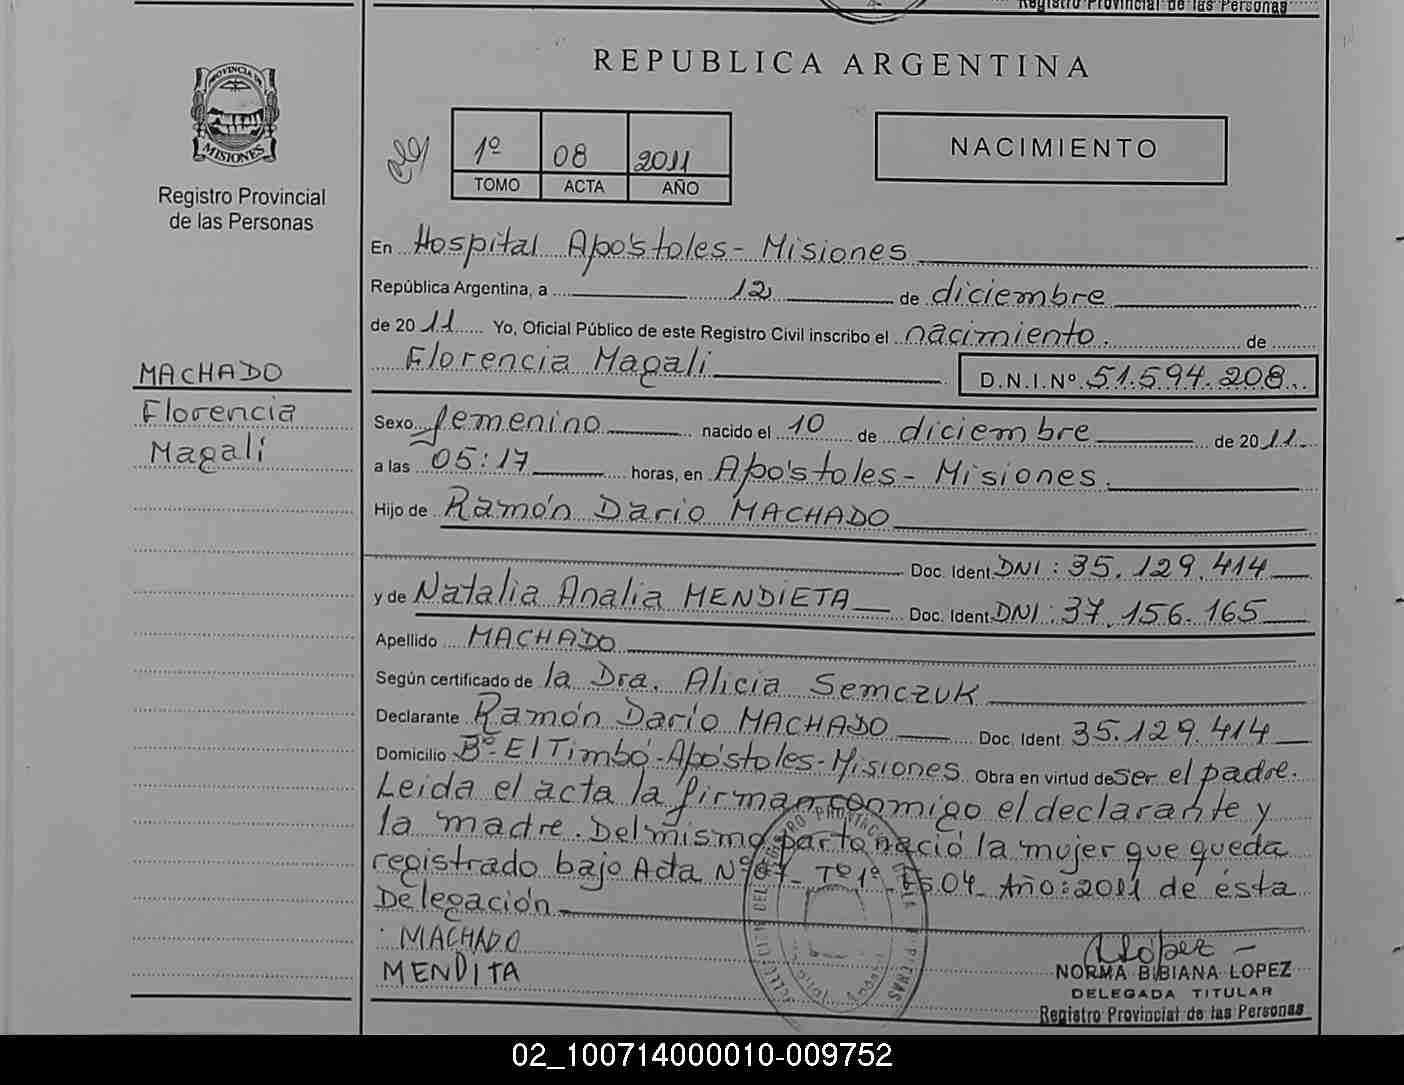 Registro Provincial de las Personas
REPUBLICA ARGENTINA
PROVINCIA DE
MISIONES
Registro Provincial
de las Personas
1º 08 2011
TOMO ACTA AÑO
NACIMIENTO
En Hospital Apóstoles - Misiones
República Argentina, a 12 de diciembre
de 2011 Yo, Oficial Público de este Registro Civil inscribo el nacimiento. de
Florencia Magalí D.N.I.Nº 51.594.208
MACHADO
Florencia
Magalí
Sexo femenino nacido el 10 de diciembre de 2011
a las 05:17 horas, en Apóstoles - Misiones.
Hijo de Ramón Dario MACHADO
Doc. Ident. DNI: 35.129.414
y de Natalia Analia MENDIETA Doc. Ident. DNI: 37.156.165
Apellido MACHADO
Según certificado de la Dra. Alicia Semczuk
Declarante Ramón Darío MACHADO Doc. Ident. 35.129.414
Domicilio Bº El Timbó - Apóstoles - Misiones Obra en virtud de ser el padre.
Leida el acta la firman conmigo el declarante y
la madre. Del mismo parto nació la mujer que queda
registrado bajo Acta Nº 07 - Tº 1º - Fº 04 - Año: 2011 de ésta
Delegación
MACHADO
MENDITA
NORMA BIBIANA LOPEZ
DELEGADA TITULAR
Registro Provincial de las Personas
02_100714000010-009752